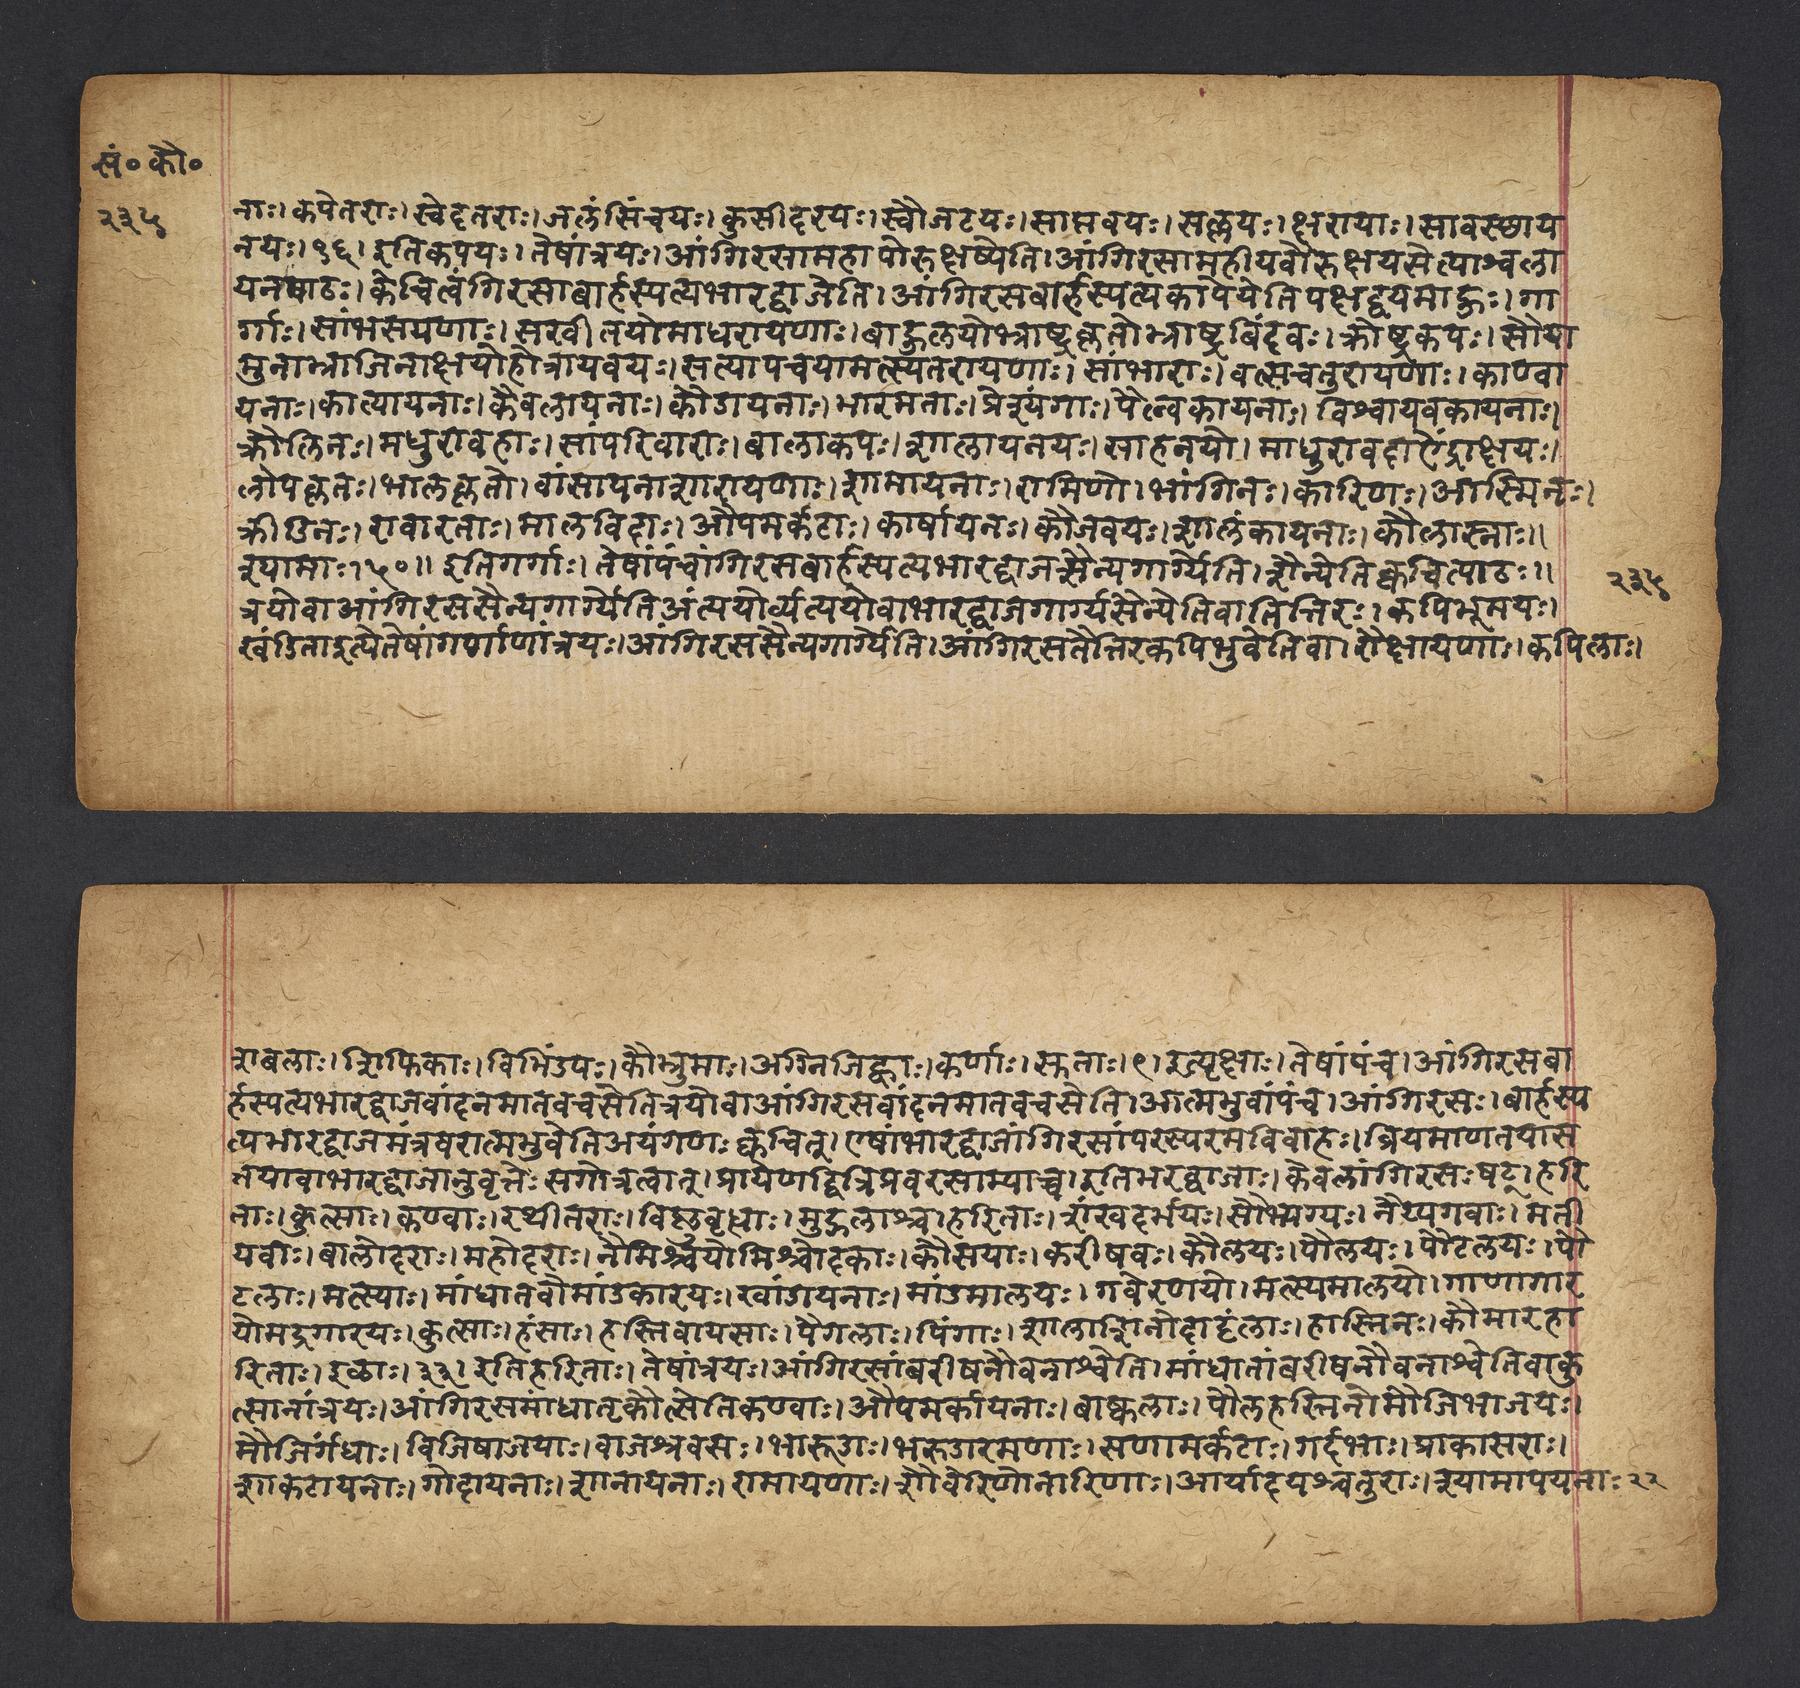 सं॰ कौ॰
२३५
नाः। कपेतराः। स्वेदतराः। जलंसिंचयः। कुसीदरयः। स्वौजटयः। सामवयः। सल्लयः। क्षरायाः। सावस्छाय
नयः। १६। इतिकपयः। तेषांत्रयः। आंगिरसामहा पौरुक्षष्येति। आंगिरसामहीयवौरुक्षयसेत्याश्वला
यनपाठः। केचित्वंगिरसाबार्हस्पत्यभारद्वाजेति। आंगिरसबार्हस्पत्यकापेयेतिपक्षद्वयमाहुः। गा
र्गाः। सांभसयणाः। सखीतयोमाधरायणाः। बाहुलयोभ्राष्ट्रकृतोभ्राष्ट्रबिंदवः। क्रोष्ट्रकपः। सौया
मुनाभ्राजिनाक्षयोहोत्रायवयः। सत्यापचयामत्स्यतरायणाः। सांभाराः। वत्सचतुरायणाः। काण्वा
यनाः। कात्यायनाः। कैवलायनाः। कौडायनाः। भारमताः। प्रेत्र्यंगाः। पैन्वेकायनाः। विश्वायवकायनाः।
क्रौलिनः। मधुरावहाः। सांपरिवाराः। बालाकपः। शगलायनयः। साहनयो। माधुरावदाऐंद्राक्षयः।
लोपकृतः। भालकृतो। वांसायनाशारायणाः। शामायनाः। रामिणो। भांगिनः। कारिणः। आस्मिनः।
क्रीडिनः। रावारताः। मालविदाः। औपमर्कटाः। कार्षायनः। कौजवयः। शालंकायनाः। कौलास्नाः॥
श्यामाः। ५०॥ इतिगर्गाः। तेषांपंचांगिरसबार्हस्पत्यभारद्वाजसैन्यगार्ग्येति। शैन्येतिक्वचित्पाठः॥
२३५
त्रयोवाआंगिरससैन्यगार्ग्येतिअंत्ययोर्व्यत्ययोवाभारद्वाजगार्ग्यसैन्येतिवातित्तिरः। कपिभूमयः।
खंडिताइत्येतेषांगर्गाणांत्रयः। आंगिरससैन्यगार्ग्येति। आंगिरसतैत्तिरकपिभुवेतिवा। रौक्षायणाः। कपिलाः।
शबलाः। शिफिकाः। विभिंडयः। कौभ्रुमाः। अग्निजिह्वाः। कर्णाः। स्कताः। ९। इत्यृक्षाः। तेषांपंच। आंगिरसबा
र्हस्पत्यभारद्वाजवांदनमातवचसेतित्रयोवाआंगिरसवांदनमातवचसेति। आत्मभुवांपंच। आंगिरसः। बार्हस्प
त्यभारद्वाजमंत्रवरात्मभुवेतिअयंगणः क्वचित्। एषांभारद्वाजांगिरसांपरस्परमविवाहः। व्रियमाणतयास
तयावाभारद्वाजानुवृत्तेः सगोत्रत्वात्। प्रायेणद्वित्रिप्रवरसाम्याच्च। इतिभरद्वाजाः। केवलांगिरसः षट्। हरि
ताः। कुत्साः। कण्वाः। रथीतराः। विष्णुवृधाः। मुद्गलाश्च। हरिताः। शंखदर्भयः। सौभ्यग्यः। नैय्यगवाः। मंती
यवाः। बालोदराः। महोदराः। नैमिश्र्वेयोमिश्रोदकाः। कौसयाः। करीषवः। कौलयः। पौलयः। पौटलयः। पौ
टलाः। मत्स्याः। मांधातवोमांडकारयः। खांडायनाः। मांडमालयः। गवेरणयो। मत्स्यमालयो। गाणागार
योमद्रगारयः। कुत्साः। हंसाः। हस्तिवायसाः। पैगलाः। पिंगाः। शालाशिनोदादंलाः। हास्तिनः। कौमारहा
रिताः। इळाः। ३३। इतिहरिताः। तेषांत्रयः। आंगिरसांबरीषनौवनाश्वेति। मांधातांबरीषनौवनाश्वेतिवाकु
त्सानांत्रयः। आंगिरसमांधातृकौत्सेतिकण्वाः। औपमर्कायनाः। बाष्कलाः। पौलहस्तिनोमौजिभाजयः।
मौजिर्गंधाः। विजिषाजयाः। वाजश्रवसः। भारूडाः। भरुडारमणाः। सणामर्कटाः। गर्दभाः। प्राकासराः।
शाकटायनाः। गौदायनाः। शानायनाः। रामायणाः। शौवेरिणोनारिणाः। आर्यादयश्चतुराः। श्यामापयनाः २२